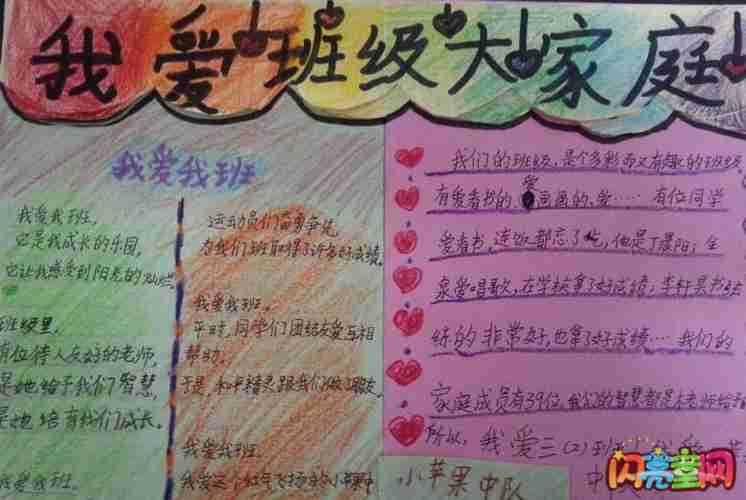 我爱班级大家庭
我爱我班
我爱我班,
它是我成长的乐园,
它让我感受到阳光的灿烂
班级里,
有位待人友好的老师,
是她给予我们智慧
是她培育我们成长。
我爱我班。
运动员们奋勇争先
为我们班取得了许多好成绩。
我爱我班。
平时,同学们团结友爱互相
帮助。
于是,和平精灵跟我们做了朋友。
我爱我班。
我们的班级,是个多彩而又有趣的班级
有爱看书的、爱画画的、爱…… 有位同学
爱看书,连饭都忘了吃,他是丁晨阳;全
泉爱唱歌,在学校拿了好成绩;李轩昊书法
练的非常好,也拿了好成绩…我们的
家庭成员有39位,我们的智慧都是老师给予
所以,我爱三(2)班
小苹果中队
闪亮童网